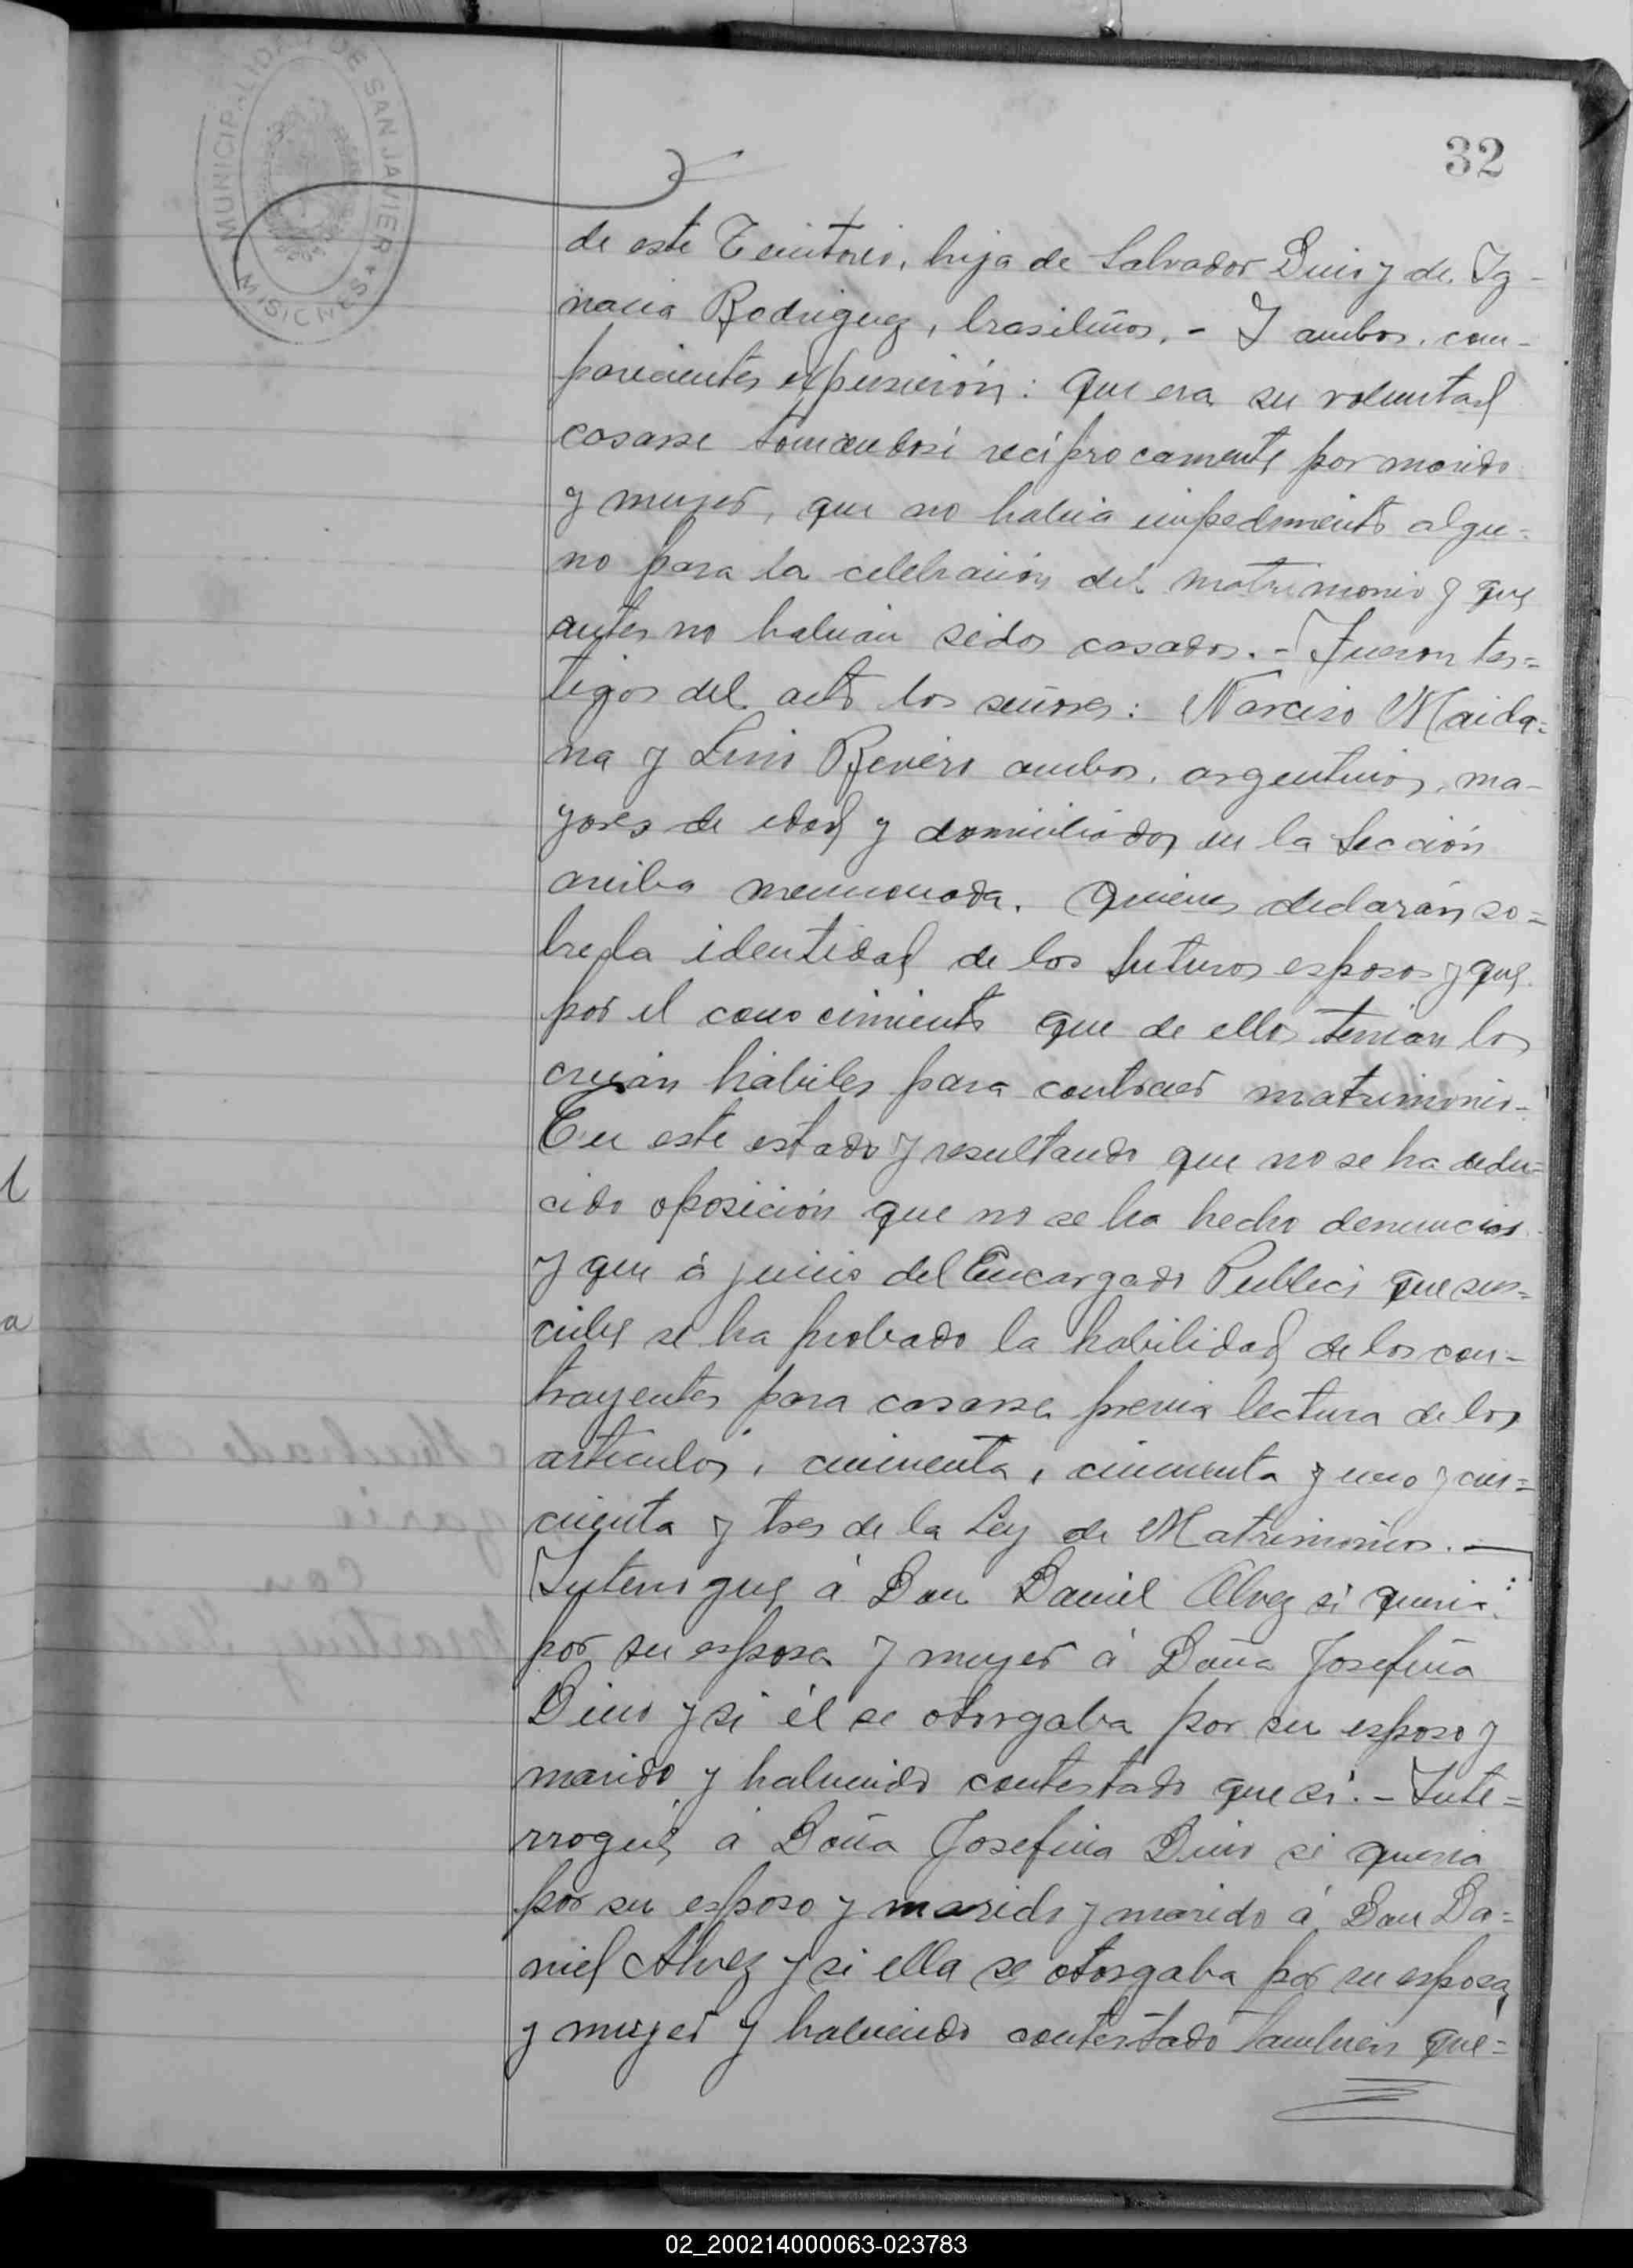 MUNICIPALIDAD DE SAN JAVIER
MISIONES
32
de este Territorio, hija de Salvador Dino y de Ig-
nacia Rodriguez, brasileños. - Y ambos com-
parecientes expusierón: que era su voluntad
casarse tomandosé recíprocamente por marido
y mujer, que no habia impedimento algu=
no para la celebración del matrimonio y que
antes no habian sidos casados. - Fueron tes=
tigos del acto los señores: Narciso Maida=
na y Luis Rivero ambos, argentinos, ma-
yores de edad y domiciliados en la Sección
arriba mencionada. Quienes declarán so=
bre la identidad de los futuros esposos y que
por el conocimiento que de ellos tenian los
creian hábiles para contraer matrimonio-
En este estado y resultando que no se ha dedu=
cido oposición que no se ha hecho denuncias
y que á juicio del Encargado Publico que sus=
cribe se ha probado la habilidad de los con-
trayentes para casarse previa lectura de los
artículos, cincuenta, cincuenta y uno y cin=
cuenta y tres de la Ley de Matrimonios. —
Interrogué á Don Daniel Alvez si queria
por su esposa y mujer á Doña Josefina
Dino y si él se otorgaba por su esposo y
marido y habiendo contestado que si. - Inte=
rrogué á Doña Josefina Dino si queria
por su esposo y marido y marido á Don Da=
niel Alvez y si ella se otorgaba por su esposa
y mujer y habiendo contestado tambien que=
02_200214000063-023783